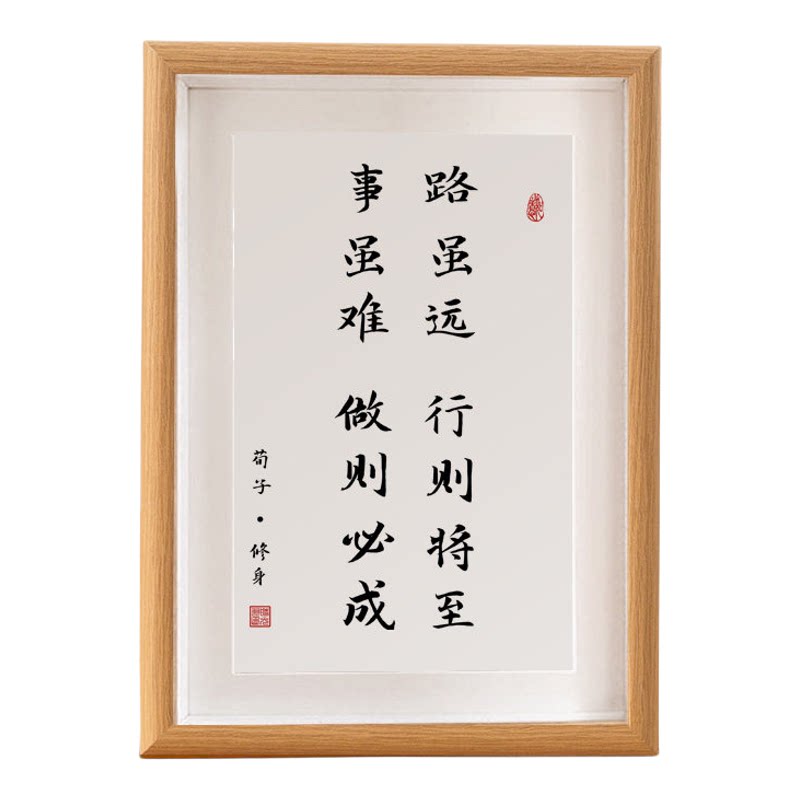 路虽远 行则将至
事虽难 做则必成
荀子·修身